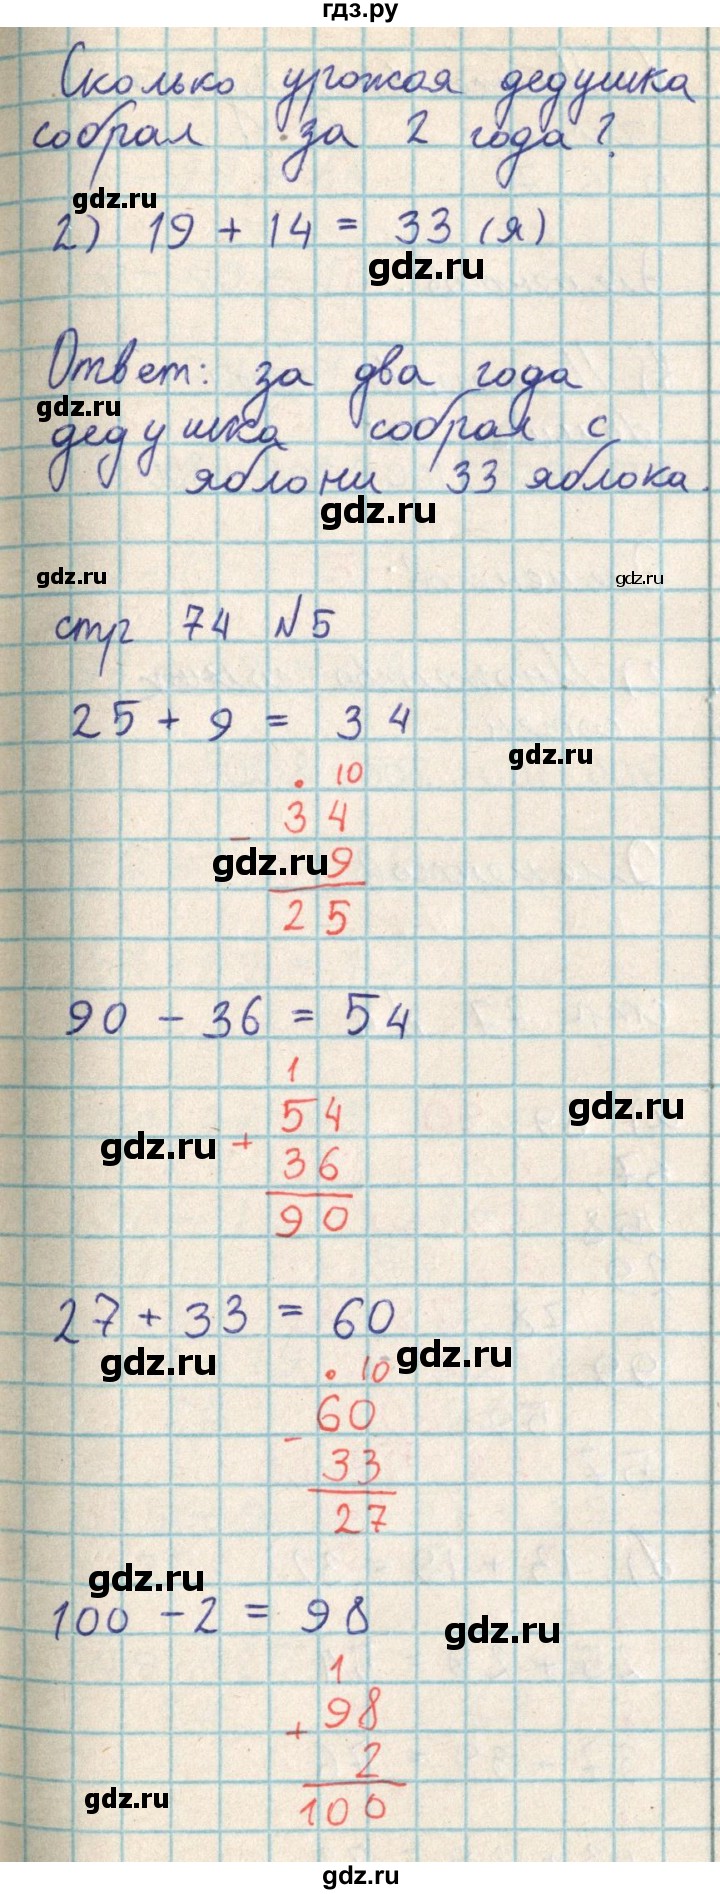 гдз.ру
Сколько урожая дедушка
собрал за 2 года?
gdz.ru
2) 19 + 14 = 33 (я)
gdz.ru
Ответ: за два года
gdz.ru
дедушка собрал с
яблони 33 яблока.
gdz.ru
gdz.ru
gdz.ru
стр 74 №5
25 + 9 = 34
gdz.ru
. 10
34
- 9
gdz.ru
25
90 - 36 = 54
1
54
gdz.ru
gdz.ru
+ 36
90
27 + 33 = 60
gdz.ru
gdz.ru
. 10
60
- 33
27
gdz.ru
100 - 2 = 98
gdz.ru
1
98
+ 2
gdz.ru
100
gdz.ru